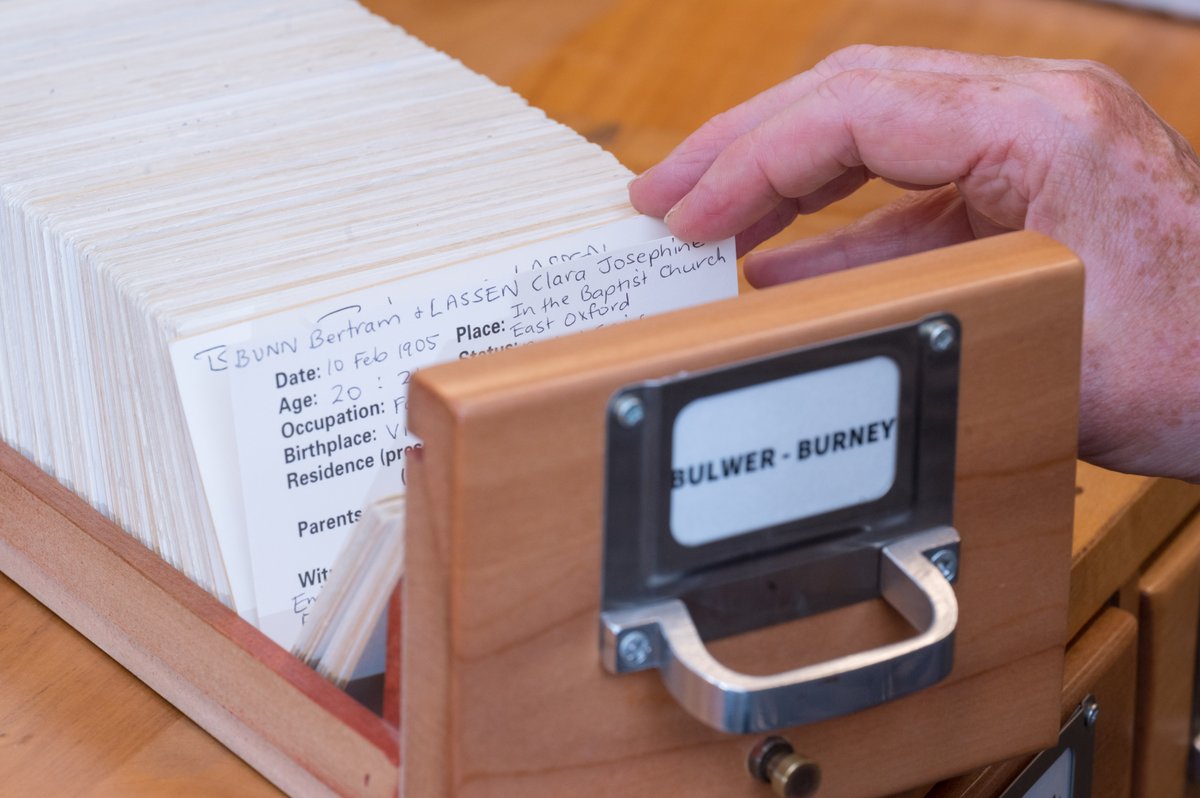 BUNN Bertram & LASSEN Clara Josephine
Date: 10 Feb 1905
Place: In the Baptist Church
East Oxford
Age: 20 :
Occupation:
Birthplace:
Residence
Parents
BULWER - BURNEY